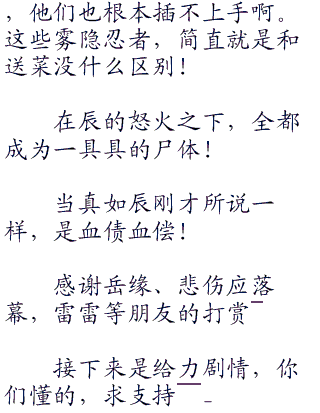 ，他们也根本插不上手啊。
这些雾隐忍者，简直就是和
送菜没什么区别！
在辰的怒火之下，全都
成为一具具的尸体！
当真如辰刚才所说一
样，是血债血偿！
感谢岳缘、悲伤应落
幕，雷雷等朋友的打赏¯
接下来是给力剧情，你
们懂的，求支持¯_